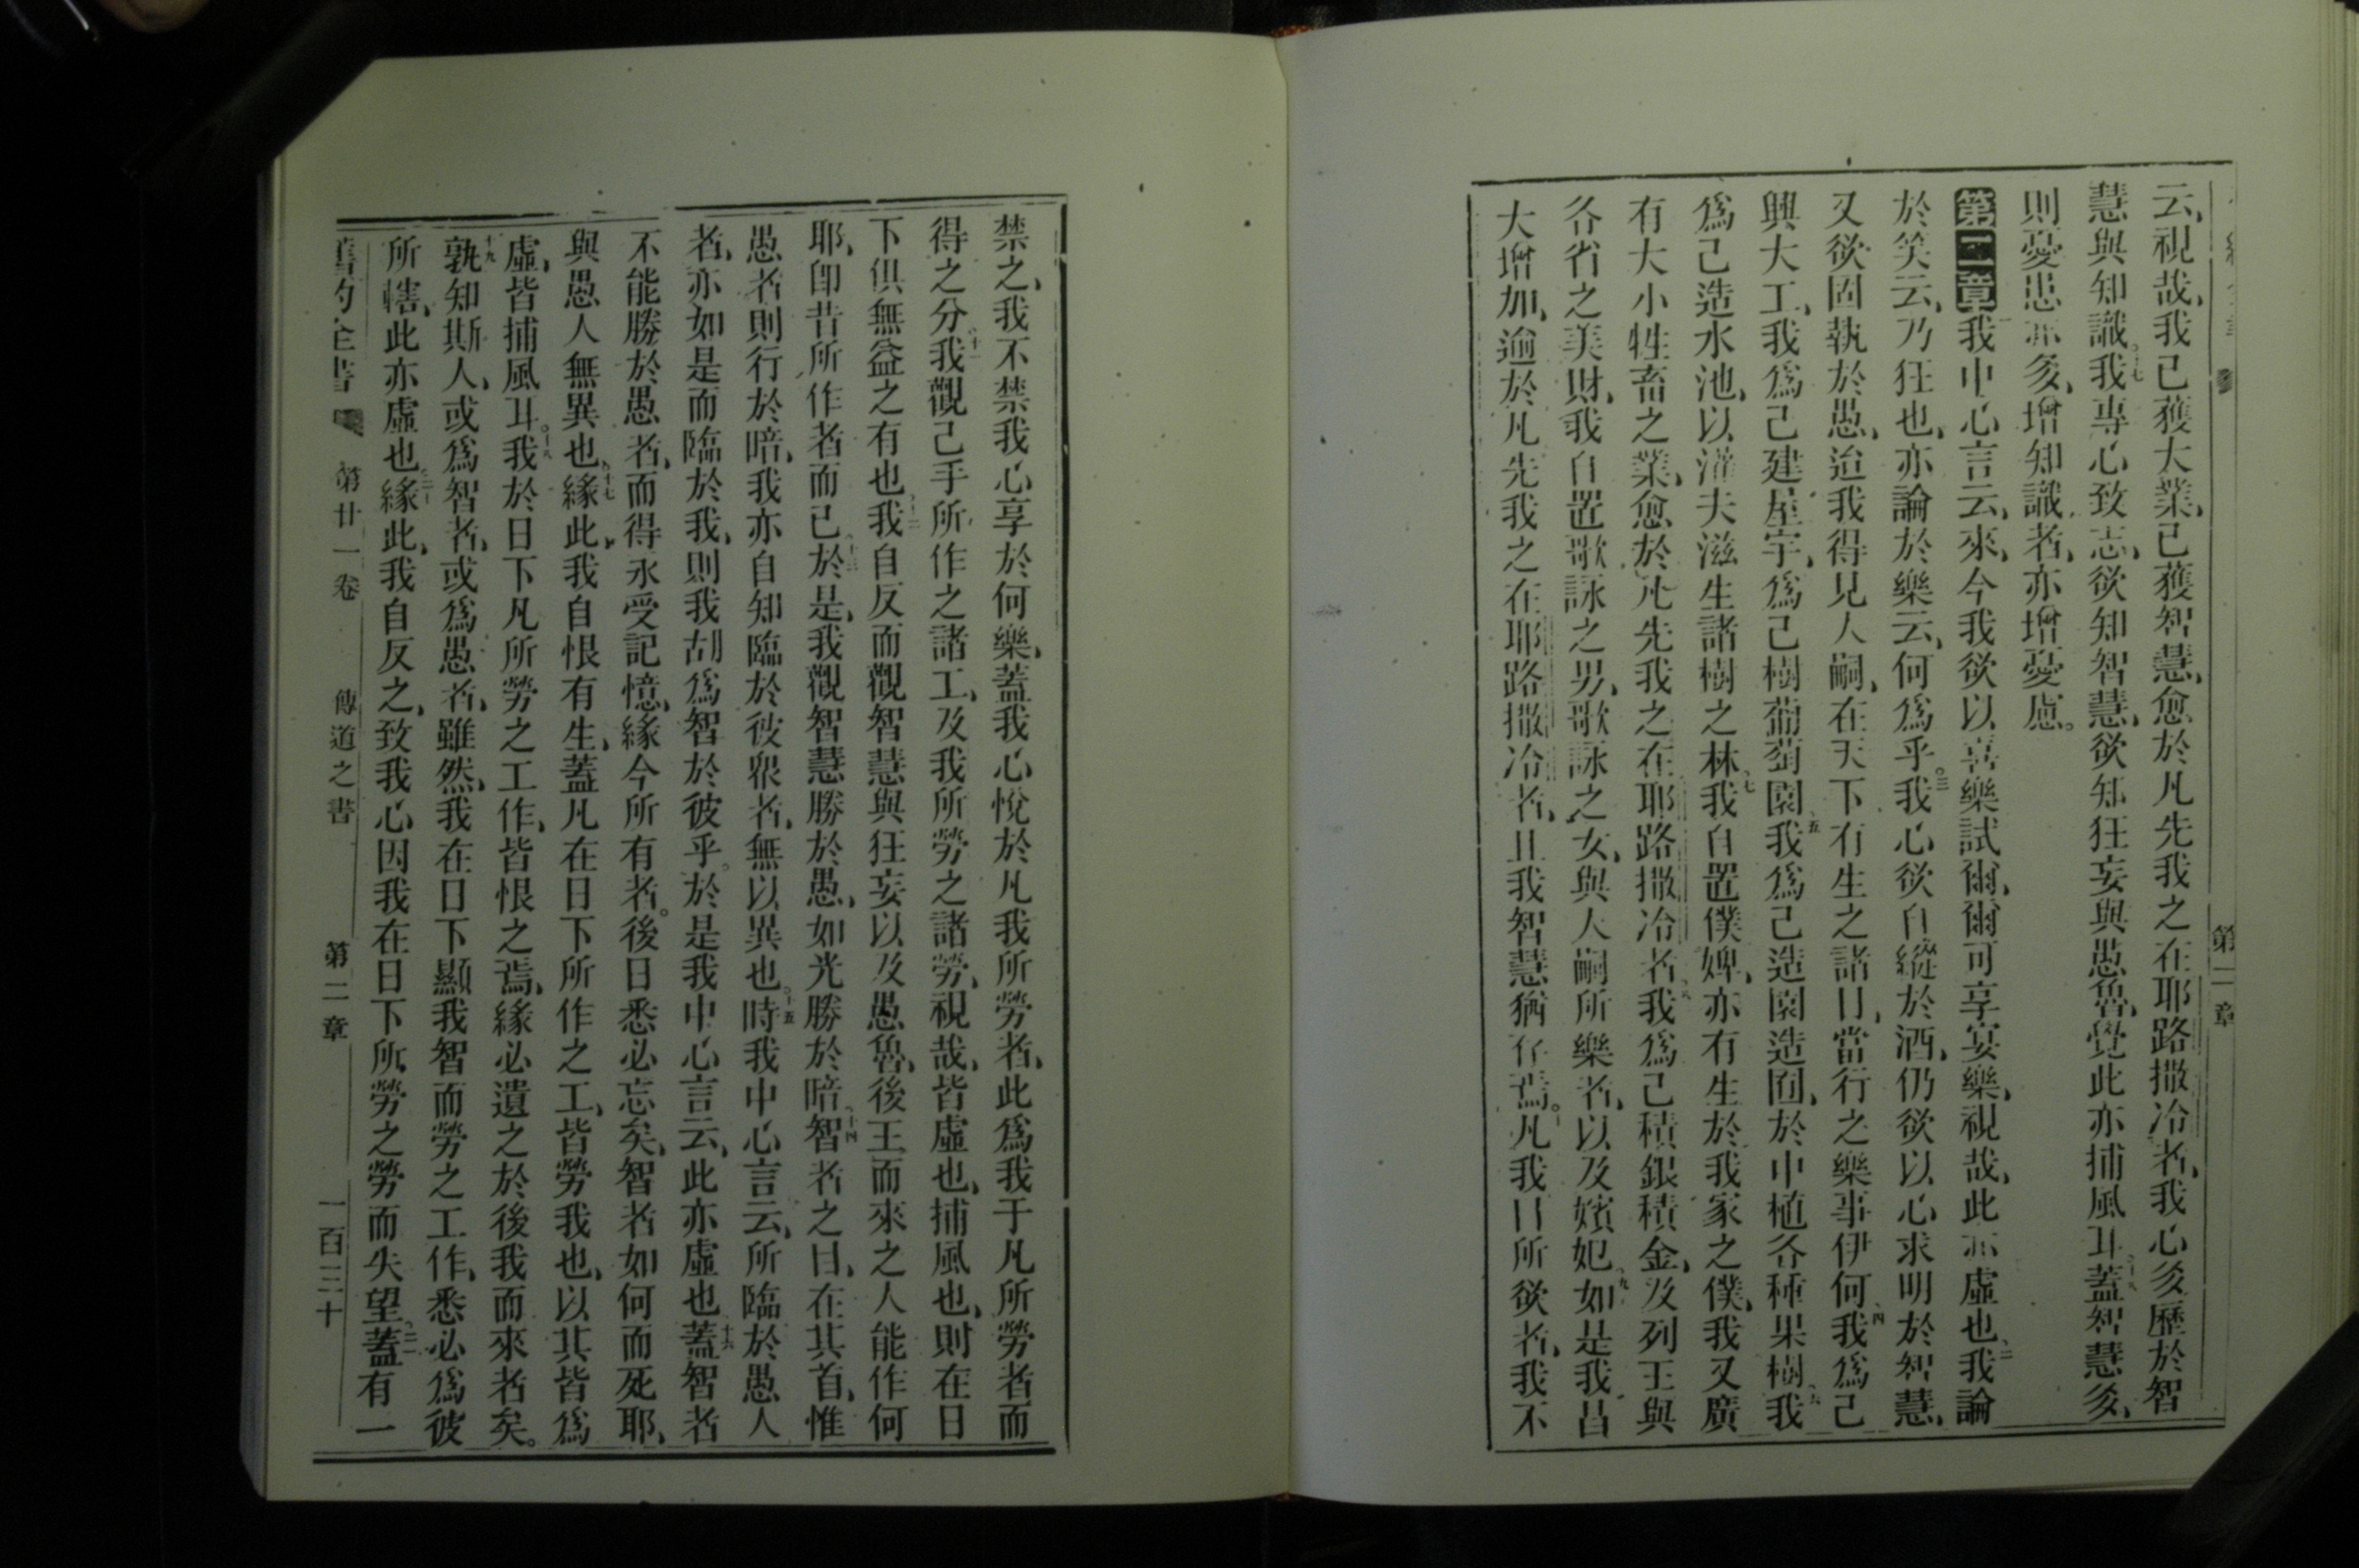 第二章
云、視哉、我已獲大業、已獲智慧、愈於凡先我之在耶路撒冷者、我心多歷於智
慧與知識。十七我專心致志、欲知智慧、欲知狂妄與愚魯、覺此亦捕風耳。十八蓋智慧多、
則憂思亦多、增知識者、亦增憂慮。
第二章一我中心言云、來、今我欲以喜樂試爾、爾可享宴樂、視哉、此亦虛也、二我論
於笑云、乃狂也、亦論於樂云、何爲乎。三我心欲自縱於酒、仍欲以心求明於智慧、
又欲固執於愚、迨我得見人嗣、在天下有生之諸日、當行之樂事伊何、四我爲己
興大工、我爲己建屋宇、爲己樹葡萄園、五我爲己造園造囿、於中植各種果樹、六我
爲己造水池、以灌夫滋生諸樹之林、七我自置僕婢、亦有生於我家之僕、我又廣
有大小牲畜之業、愈於凡先我之在耶路撒冷者、八我爲己積銀積金、及列王與
各省之美財、我自置歌詠之男、歌詠之女、與人嗣所樂者、以及嬪妃、九如是我昌
大增加、逾於凡先我之在耶路撒冷者、且我智慧猶存焉。十凡我目所欲者、我不
禁之、我不禁我心享於何樂、蓋我心悅於凡我所勞者、此爲我于凡所勞者而
得之分、十一我觀己手所作之諸工、及我所勞之諸勞、視哉、皆虛也、捕風也、則在日
下俱無益之有也、十二我自反而觀智慧與狂妄以及愚魯、後王而來之人能作何
耶、卽昔所作者而已、十三於是、我觀智慧勝於愚、如光勝於暗、十四智者之目、在其首、惟
愚者則行於暗、我亦自知臨於彼衆者、無以異也。十五時我中心言云、所臨於愚人
者、亦如是而臨於我、則我胡爲智於彼乎。於是我中心言云、此亦虛也、十六蓋智者
不能勝於愚者、而得永受記憶、緣今所有者。後日悉必忘矣、智者如何而死耶、
與愚人無異也、十七緣此、我自恨有生、蓋凡在日下所作之工、皆勞我也、以其皆爲
虛、皆捕風耳。十八我於日下凡所勞之工作、皆恨之焉、緣必遺之於後我而來者矣。
十九孰知斯人、或爲智者、或爲愚者、雖然、我在日下顯我智而勞之工作、悉必爲彼
所轄、此亦虛也、二十緣此、我自反之、致我心因我在日下所勞之勞而失望、二一蓋有一
舊約全書　第廿一卷　傳道之書　第二章　一百三十